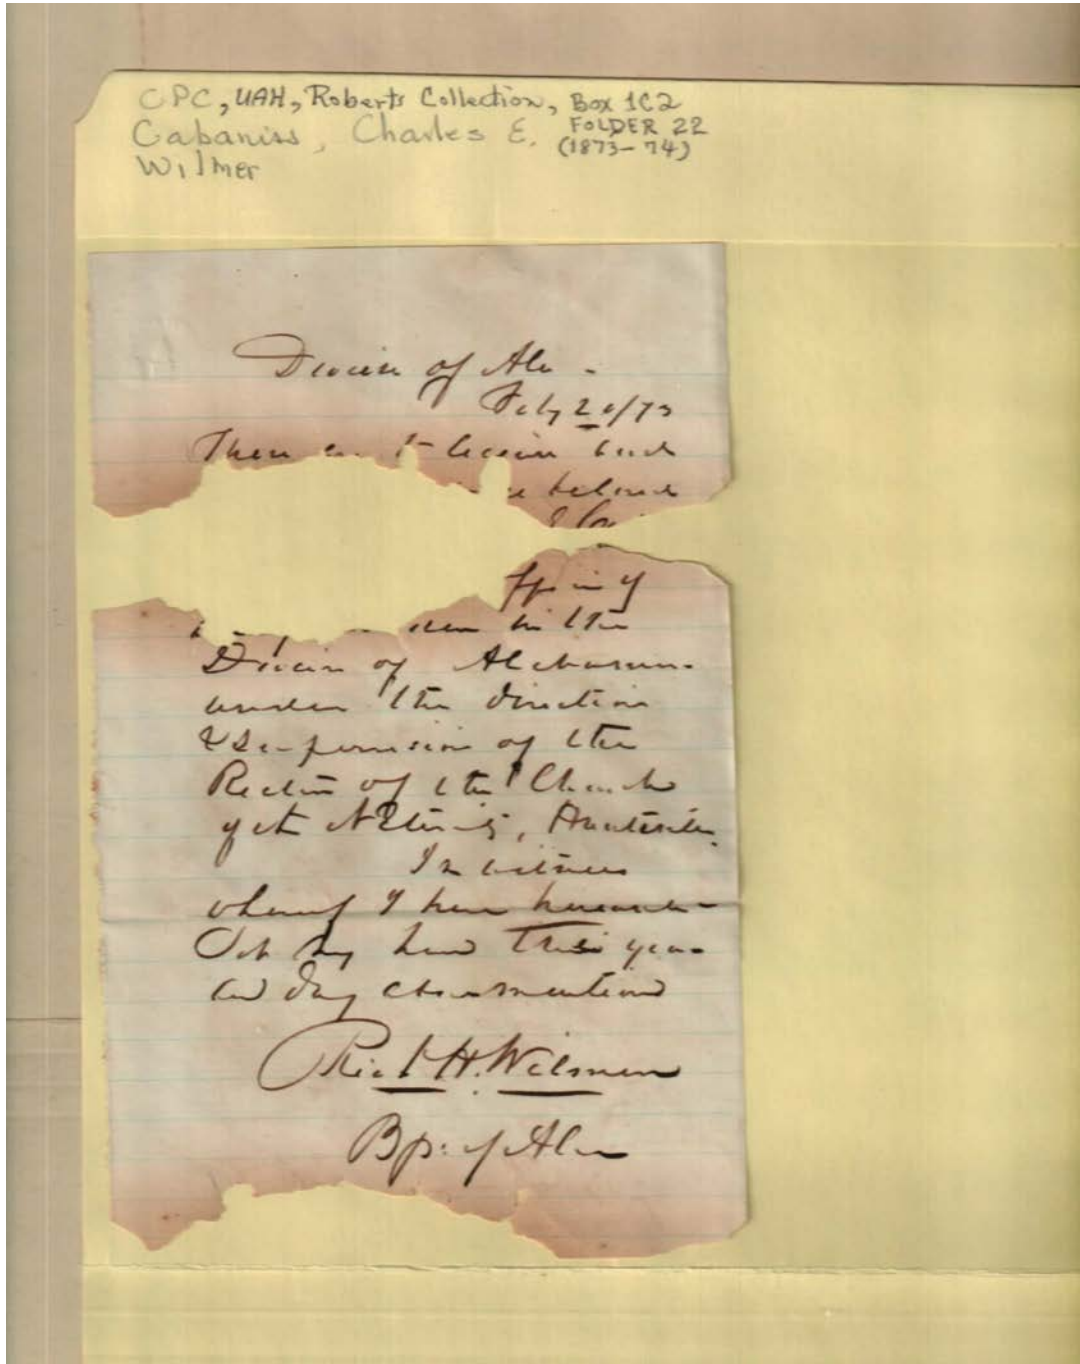 CPC, UAH, Roberts Collection, Box 1C2
Cabaniss, Charles E. FOLDER 22
(1873-74)
Wilmer
Diocese of Ala -
Feby 20/73
These are to license and
beloved
in the
Diocese of Alabama
under the direction
& Supervision of the
Rector of the Church
of the Nativity, Huntsville.
In witness
whereof I have hereunto
Set my hand this year
and day abovementioned
Rich H. Wilmer
Bp: of Ala